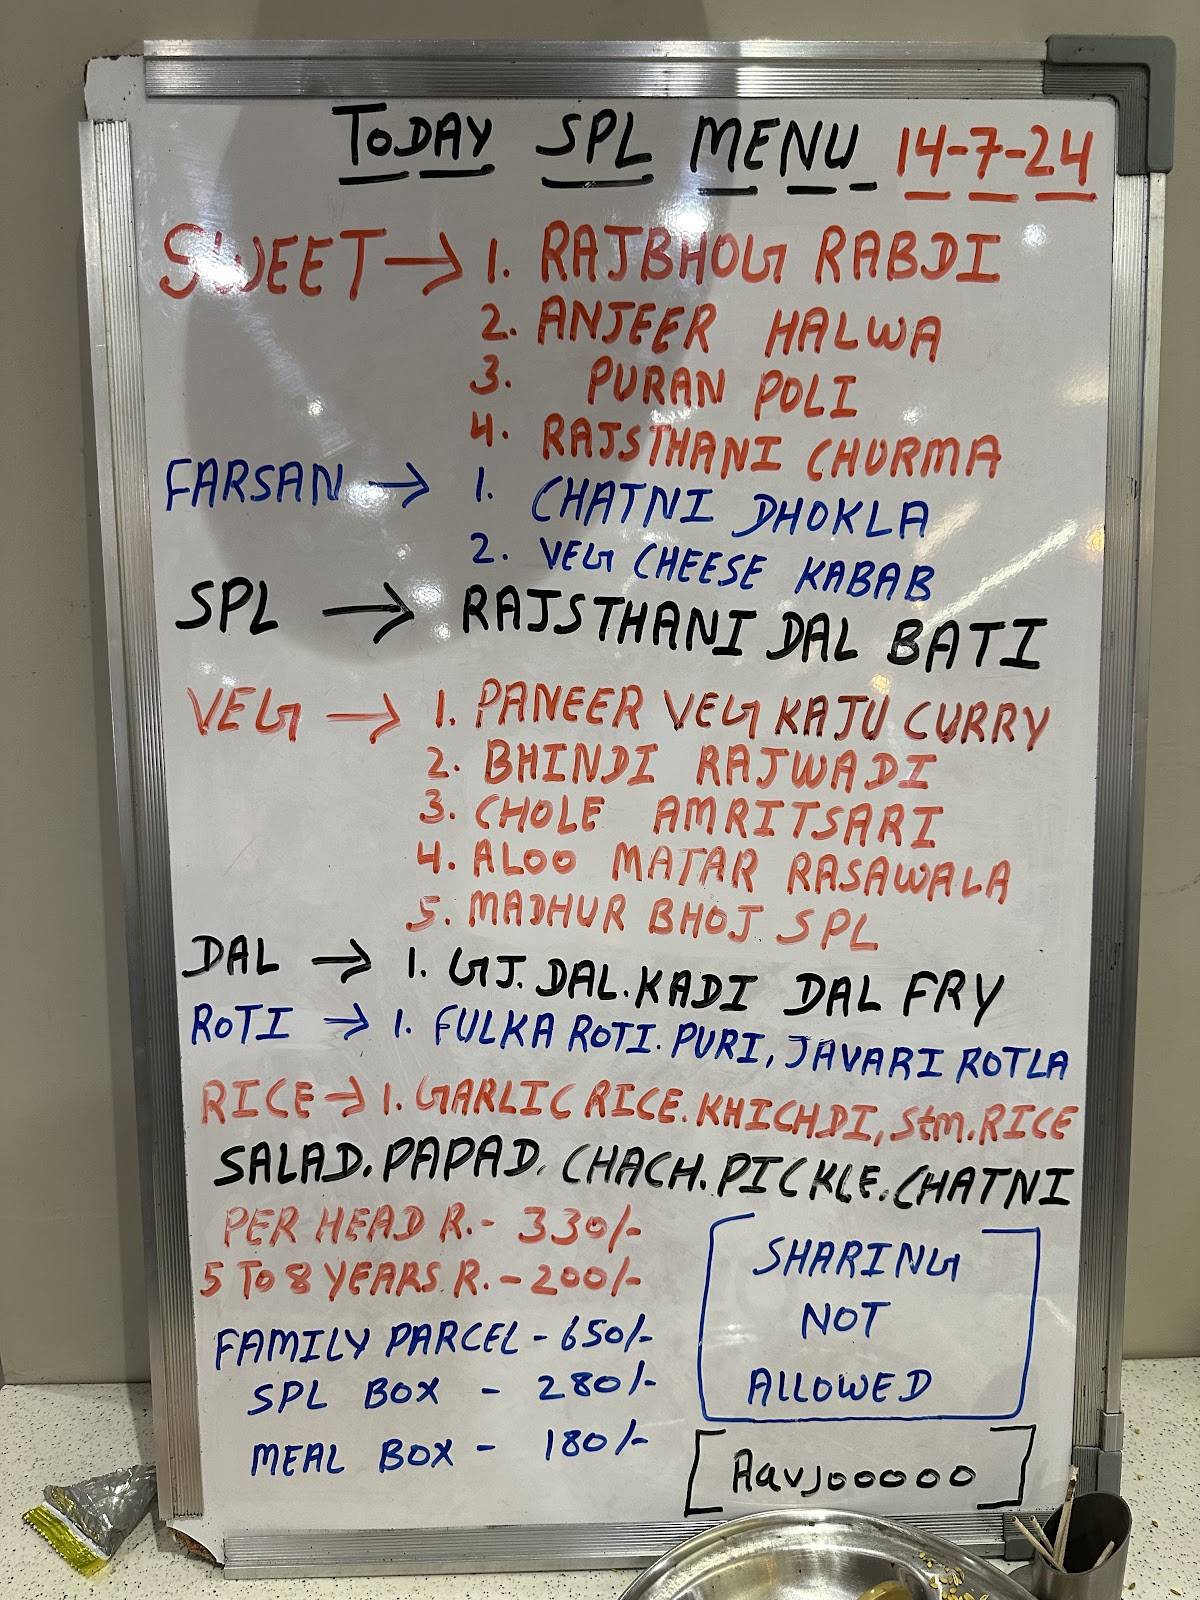 TODAY SPL MENU 14-7-24
SWEET → 1. RAJBHOG RABDI
2. ANJEER HALWA
3. PURAN POLI
4. RAJSTHANI CHURMA
FARSAN → 1. CHATNI DHOKLA
2. VEG CHEESE KABAB
SPL → RAJSTHANI DAL BATI
VEG → 1. PANEER VEG KAJU CURRY
2. BHINDI RAJWADI
3. CHOLE AMRITSARI
4. ALOO MATAR RASAWALA
5. MADHUR BHOJ SPL
DAL → 1. GJ. DAL. KADI DAL FRY
ROTI → 1. FULKA ROTI. PURI, JAVARI ROTLA
RICE → 1. GARLIC RICE. KHICHDI, Stm. RICE
SALAD. PAPAD. CHACH. PICKLE. CHATNI
PER HEAD R. - 330/-
5 TO 8 YEARS R. - 200/-
FAMILY PARCEL - 650/-
SPL BOX - 280/-
MEAL BOX - 180/-
SHARING
NOT
ALLOWED
[Aavjooooo]